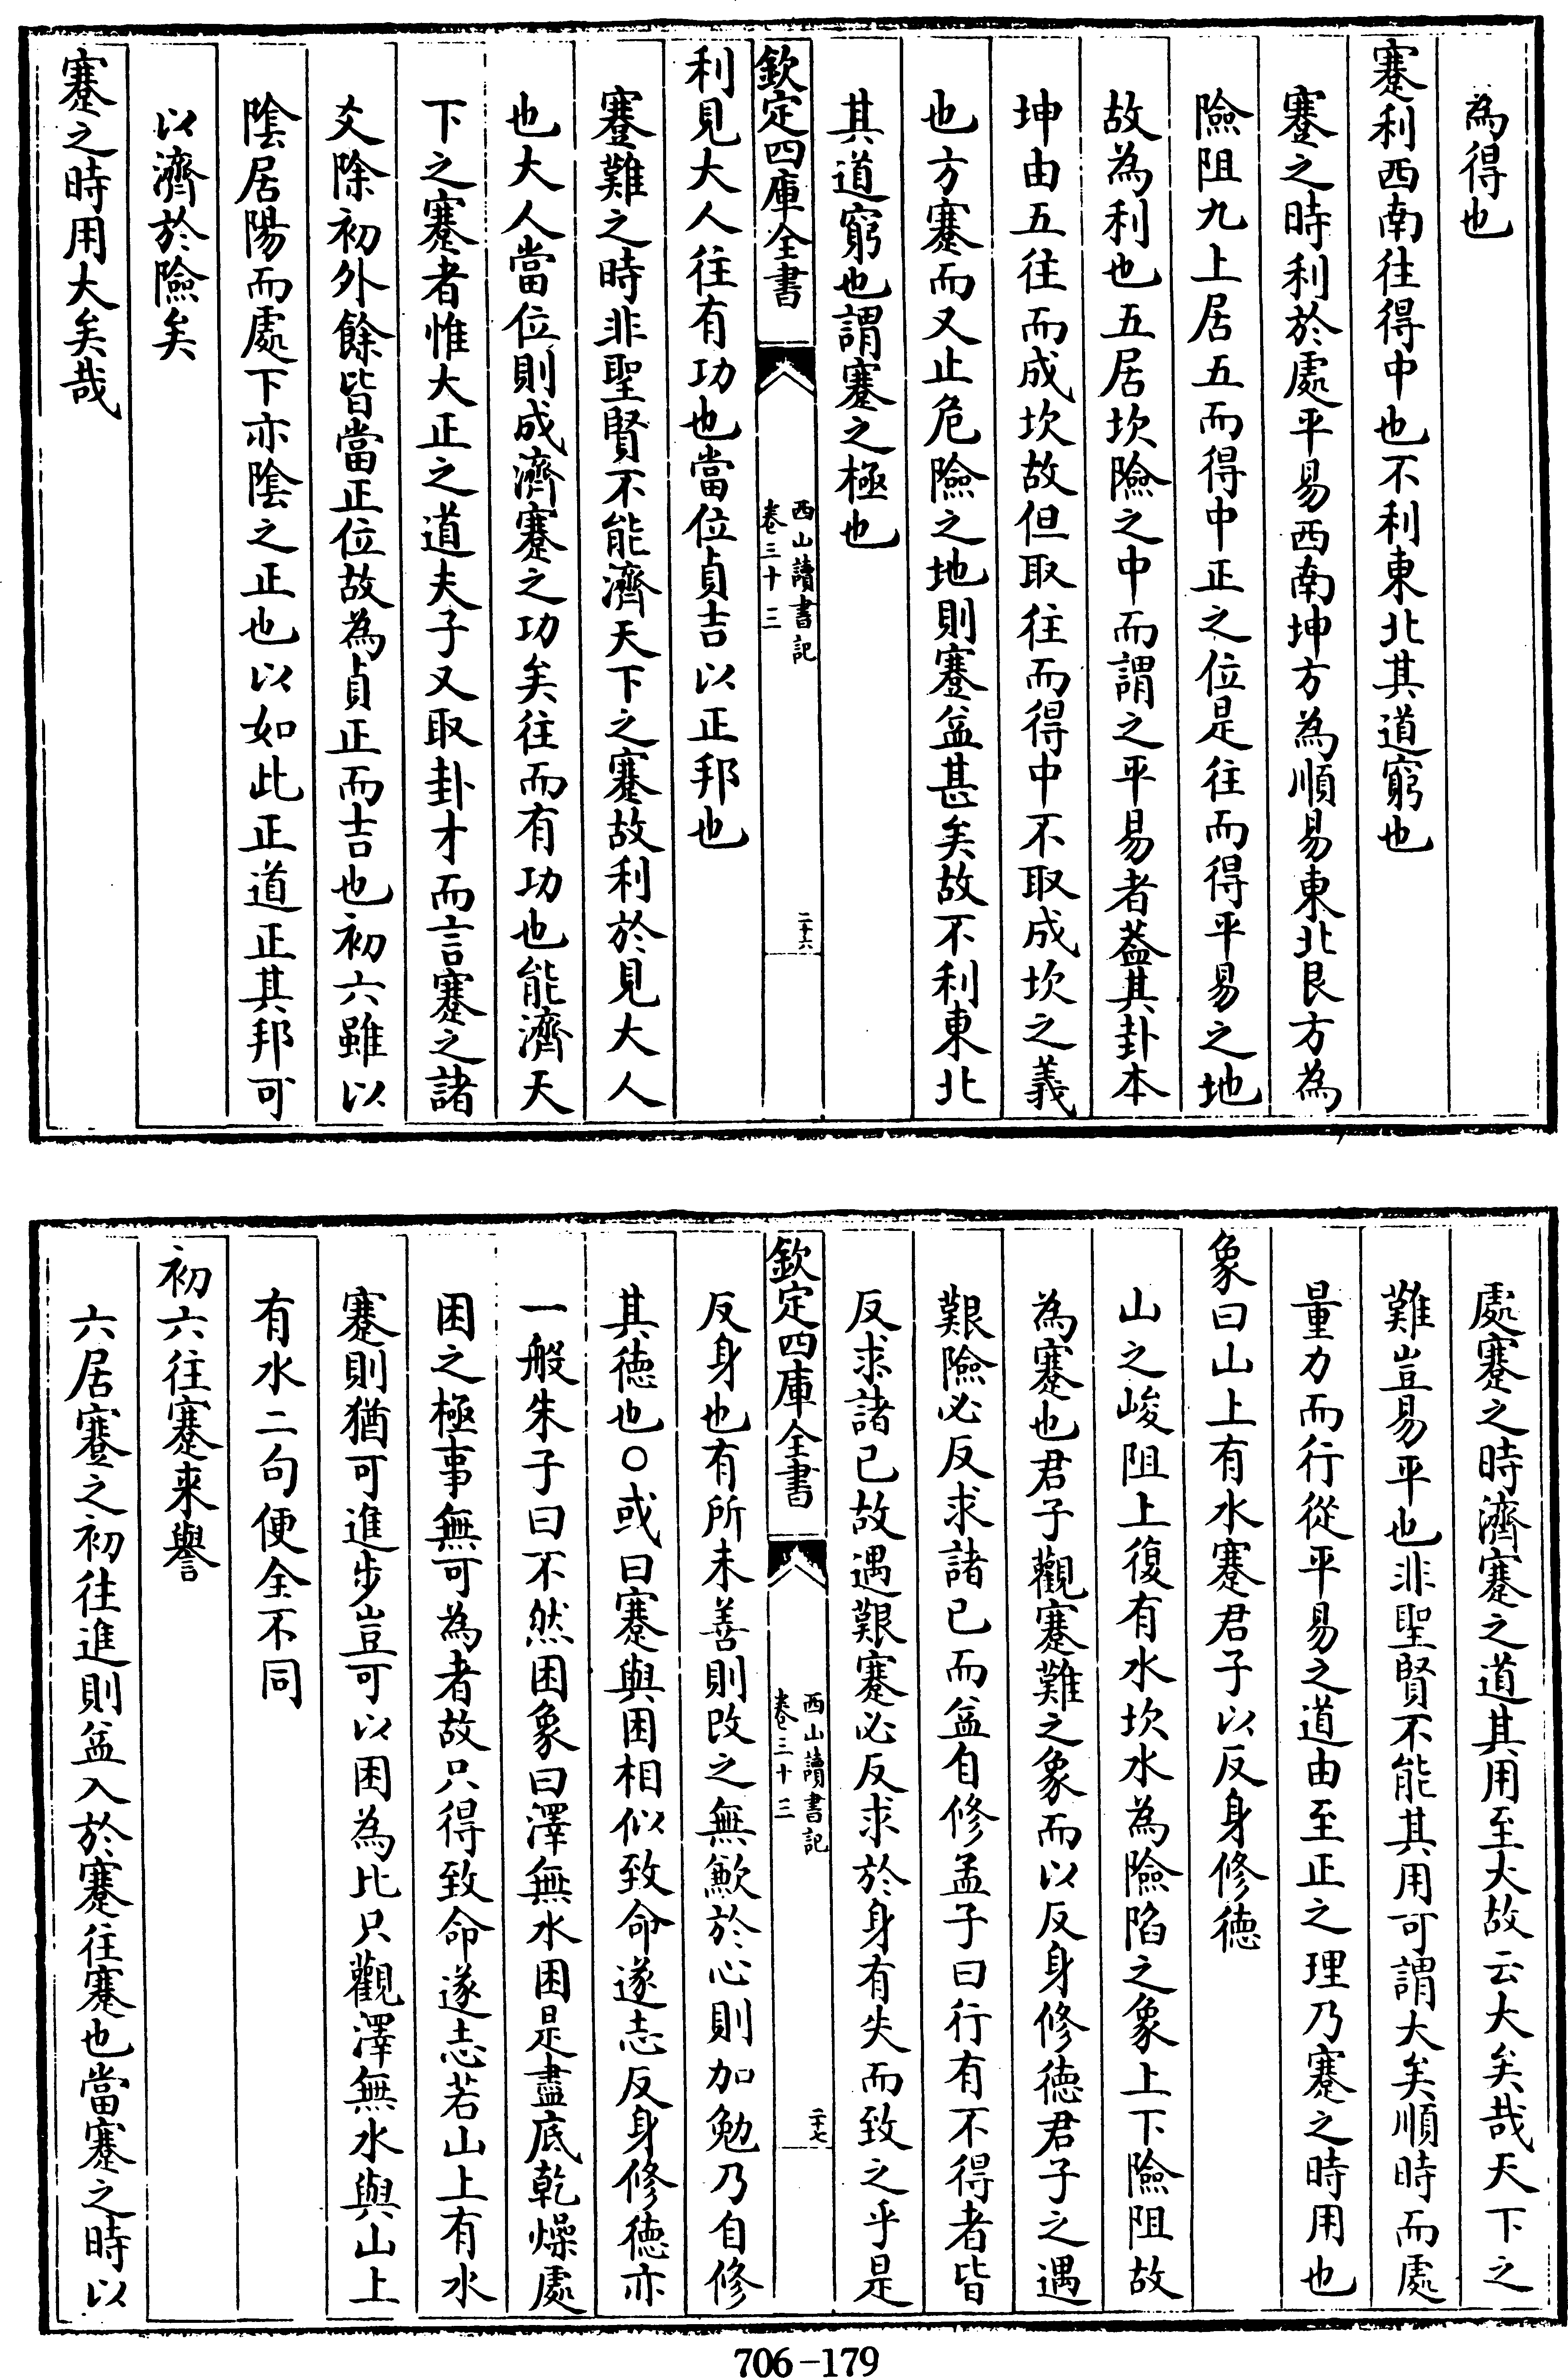 為得也
蹇利西南往得中也不利東北其道窮也
蹇之時利於處平易西南坤方為順易東北艮方為
險阻九上居五而得中正之位是往而得平易之地
故為利也五居坎險之中而謂之平易者葢其卦本
坤由五往而成坎故但取往而得中不取成坎之義
也方蹇而又止危險之地則蹇益甚矣故不利東北
其道窮也謂蹇之極也
欽定四庫全書
西山讀書記
卷三十三
二十六
利見大人往有功也當位貞吉以正邦也
蹇難之時非聖賢不能濟天下之蹇故利於見大人
也大人當位則成濟蹇之功矣往而有功也能濟天
下之蹇者惟大正之道夫子又取卦才而言蹇之諸
爻除初外餘皆當正位故為貞正而吉也初六雖以
陰居陽而處下亦陰之正也以如此正道正其邦可
以濟於險矣
蹇之時用大矣哉
處蹇之時濟蹇之道其用至大故云大矣哉天下之
難豈易平也非聖賢不能其用可謂大矣順時而處
量力而行從平易之道由至正之理乃蹇之時用也
象曰山上有水蹇君子以反身修德
山之峻阻上復有水坎水為險陷之象上下險阻故
為蹇也君子觀蹇難之象而以反身修德君子之遇
艱險必反求諸己而益自修孟子曰行有不得者皆
反求諸己故遇艱蹇必反求於身有失而致之乎是
欽定四庫全書
西山讀書記
卷三十三
二十七
反身也有所未善則改之無歉於心則加勉乃自修
其德也○或曰蹇與困相似致命遂志反身修德亦
一般朱子曰不然困象曰澤無水困是盡底乾燥處
困之極事無可為者故只得致命遂志若山上有水
蹇則猶可進步豈可以困為比只觀澤無水與山上
有水二句便全不同
初六往蹇来譽
六居蹇之初往進則益入於蹇往蹇也當蹇之時以
706-179